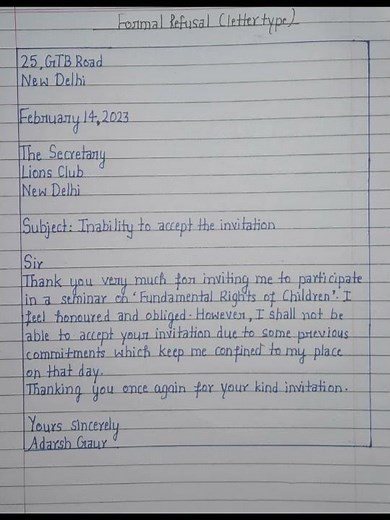 Formal Refusal (letter type)
25, GTB Road
New Delhi
February 14, 2023
The Secretary
Lions Club
New Delhi
Subject: Inability to accept the invitation
Sir
Thank you very much for inviting me to participate
in a seminar on 'Fundamental Rights of Children'. I
feel honoured and obliged. However, I shall not be
able to accept your invitation due to some previous
commitments which keep me confined to my place
on that day.
Thanking you once again for your kind invitation.
Yours sincerely
Adarsh Gaur